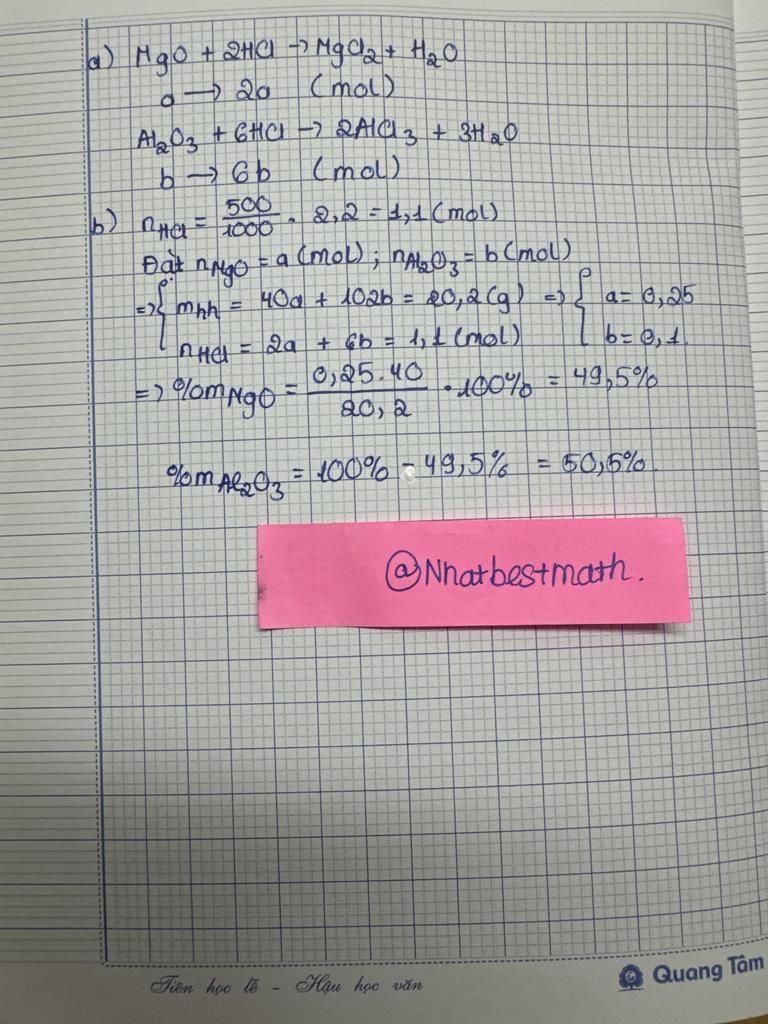 a) MgO + 2HCl → MgCl₂ + H₂O
a → 2a (mol)
Al₂O₃ + 6HCl → 2AlCl₃ + 3H₂O
b → 6b (mol)
b) nHCl = 500/1000 . 2,2 = 1,1 (mol)
Đặt nMgO = a (mol) ; nAl₂O₃ = b (mol)
=> { mhh = 40a + 102b = 20,2 (g) => { a = 0,25
nHCl = 2a + 6b = 1,1 (mol) b = 0,1.
=> %mMgO = 0,25.40/20,2 . 100% = 49,5%
%mAl₂O₃ = 100% - 49,5% = 50,5%.
@Nhatbestmath.
Tiên học lễ - Hậu học văn
Quang Tâm